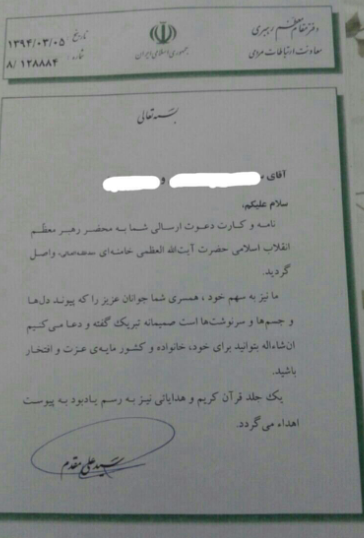 دفتر مقام معظم رهبری
معاونت ارتباطات مردمی
جمهوری اسلامی ایران
تاریخ: ۱۳۹۴/۰۳/۰۵
شماره: ۸/ ۱۲۸۸۸۴
بسمه تعالی
آقای و
سلام علیکم،
نامه و کارت دعوت ارسالی شما به محضر رهبر معظم
انقلاب اسلامی حضرت آیت‌الله العظمی خامنه‌ای واصل
گردید.
ما نیز به سهم خود ، همسری شما جوانان عزیز را که پیوند دل‌ها
و جسم‌ها و سرنوشت‌ها است صمیمانه تبریک گفته و دعا می‌کنیم
ان‌شاءاله بتوانید برای خود، خانواده و کشور مایه‌ی عزت و افتخار
باشید.
یک جلد قرآن کریم و هدایائی نیز به رسم یادبود به پیوست
اهداء می‌گردد.
سید علی مقدم